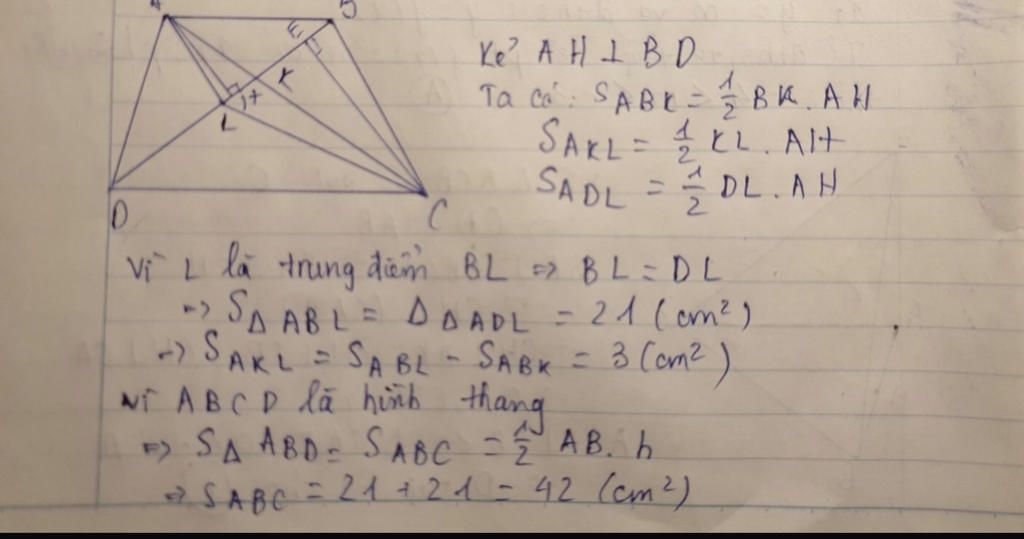 A
B
E
K
H
L
D
C
Kẻ AH ⊥ BD
Ta có: SABK = 1/2 BK. AH
SAKL = 1/2 KL. AH
SADL = 1/2 DL. AH
Vì L là trung điểm BL => BL = DL
=> SΔABL = ΔΔADL = 21 (cm²)
=> SAKL = SABL - SABK = 3 (cm²)
Vì ABCD là hình thang
=> SΔABD = SABC = 1/2 AB. h
=> SABC = 21 + 21 = 42 (cm²)